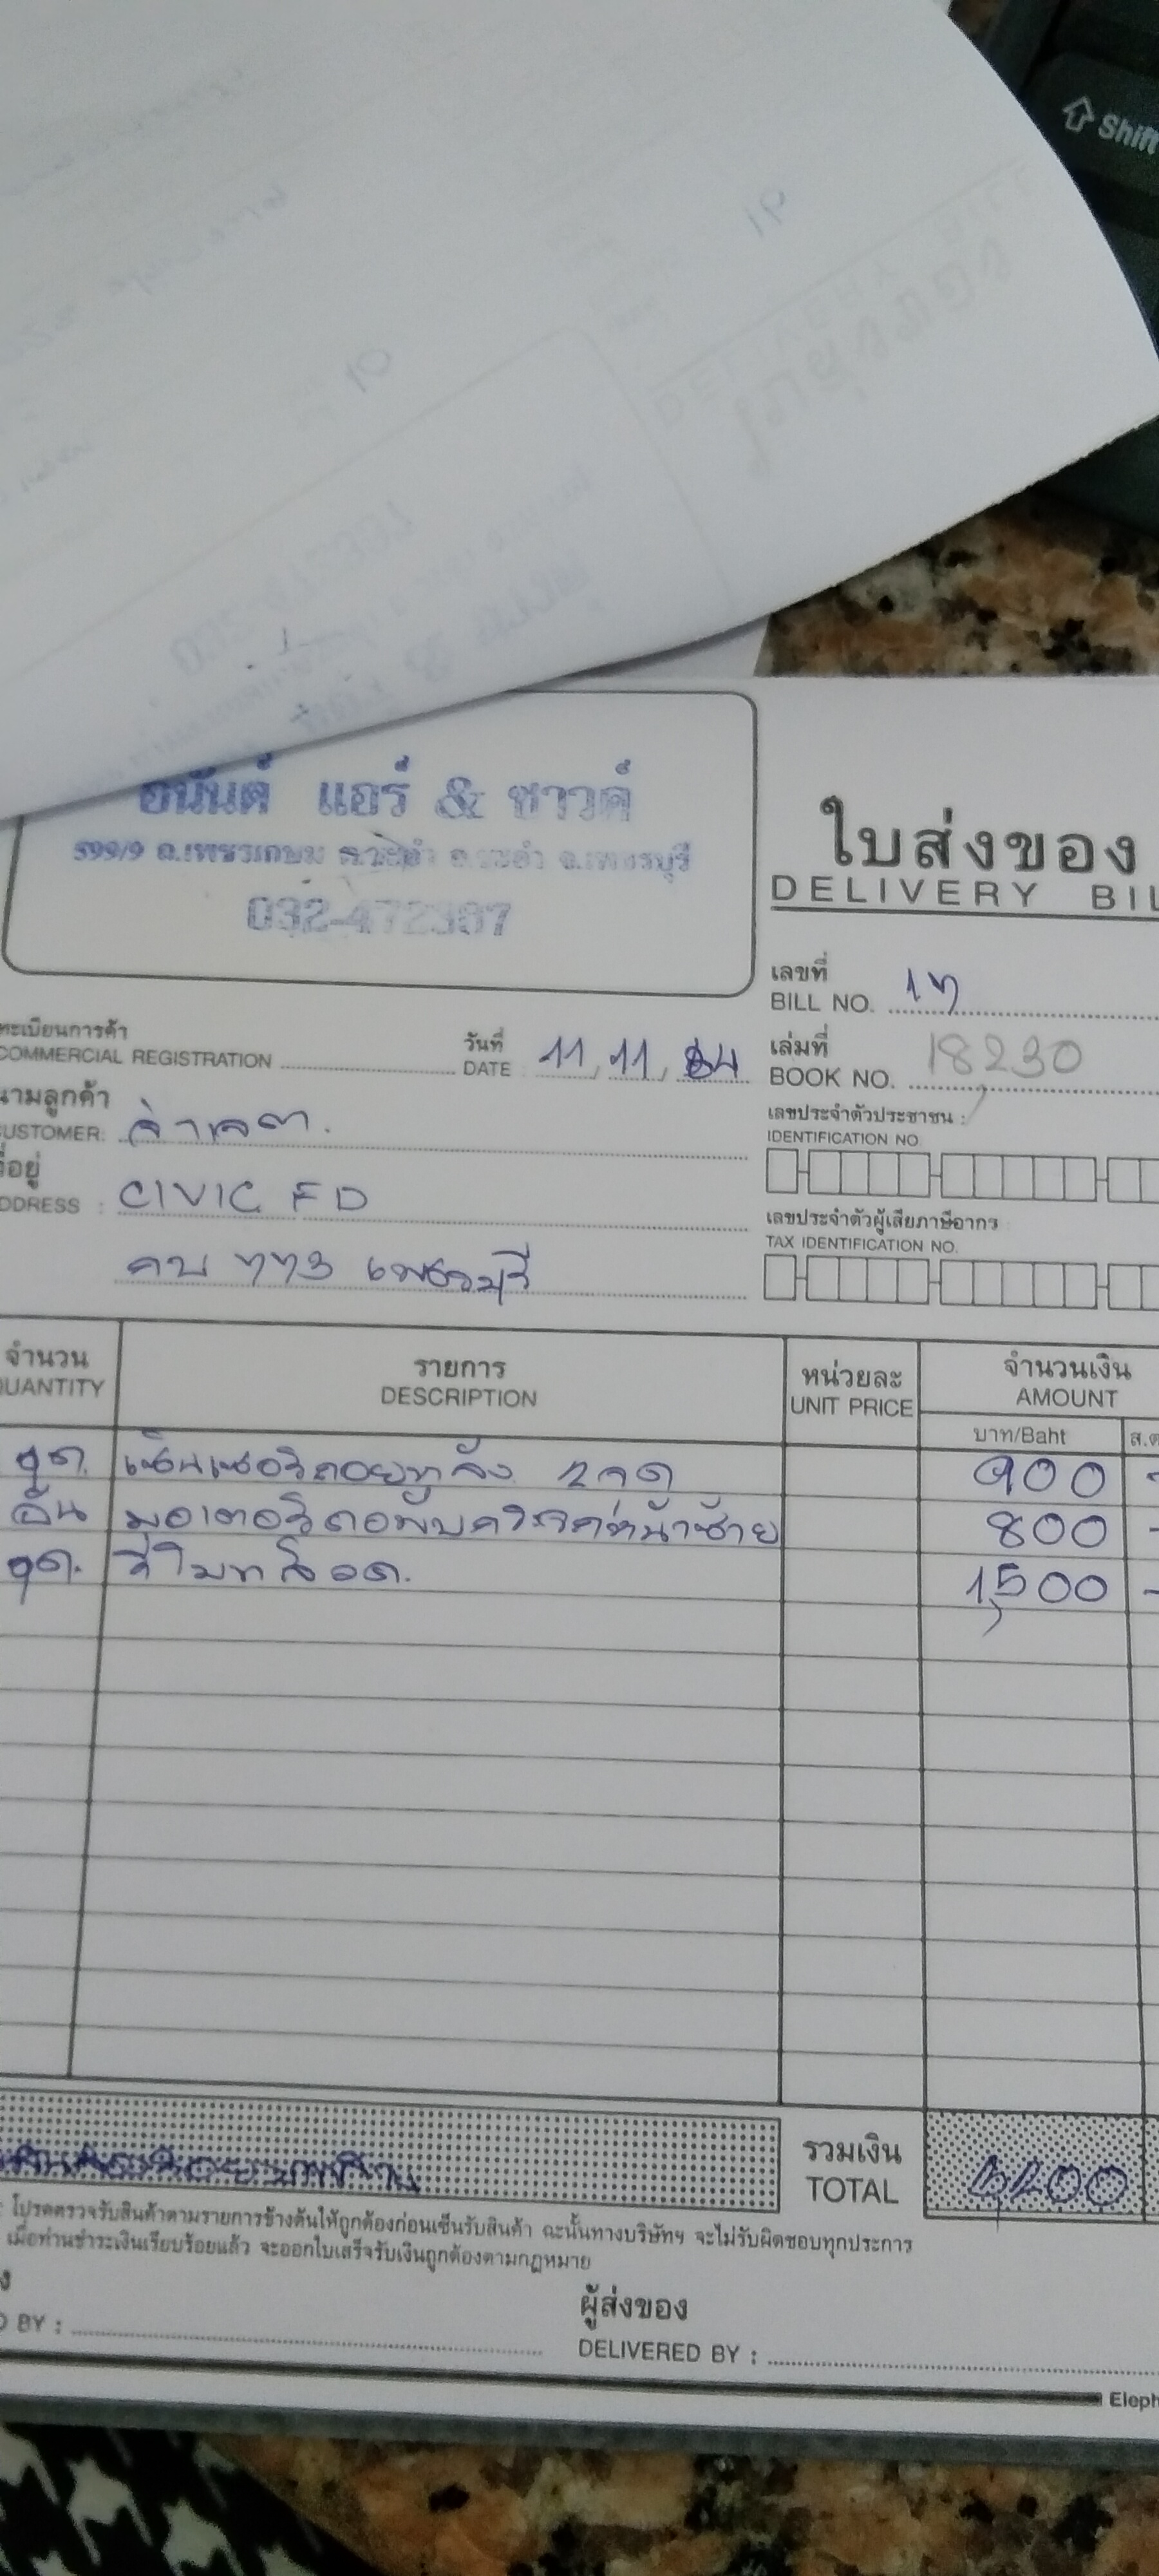 Shift
อนันต์ แอร์ & ซาวด์
599/9 ถ.เพชรเกษม ต.ชะอำ อ.ชะอำ จ.เพชรบุรี
032-472387
ใบส่งของ
DELIVERY BIL
เลขที่
BILL NO. 17
ทะเบียนการค้า
COMMERCIAL REGISTRATION
วันที่
DATE 11, 11, 64
เล่มที่
BOOK NO. 18,230
นามลูกค้า
CUSTOMER:
เลขประจำตัวประชาชน :
IDENTIFICATION NO.
ที่อยู่
DDRESS : CIVIC FD
เลขประจำตัวผู้เสียภาษีอากร
TAX IDENTIFICATION NO.
773 เพชรบุรี
จำนวน
QUANTITY
รายการ
DESCRIPTION
หน่วยละ
UNIT PRICE
จำนวนเงิน
AMOUNT
บาท/Baht
ส.ต
ชุด. เซ็นเซอร์ถอยหลัง 2 จุด 900 -
อัน มอเตอร์ 800 -
ชุด. รีโมทล็อค. 1,500 -
รวมเงิน
TOTAL 3,200
: โปรดตรวจรับสินค้าตามรายการข้างต้นให้ถูกต้องก่อนเซ็นรับสินค้า ฉะนั้นทางบริษัทฯ จะไม่รับผิดชอบทุกประการ
เมื่อท่านชำระเงินเรียบร้อยแล้ว จะออกใบเสร็จรับเงินถูกต้องตามกฎหมาย
ง
D BY :
ผู้ส่งของ
DELIVERED BY :
Eleph